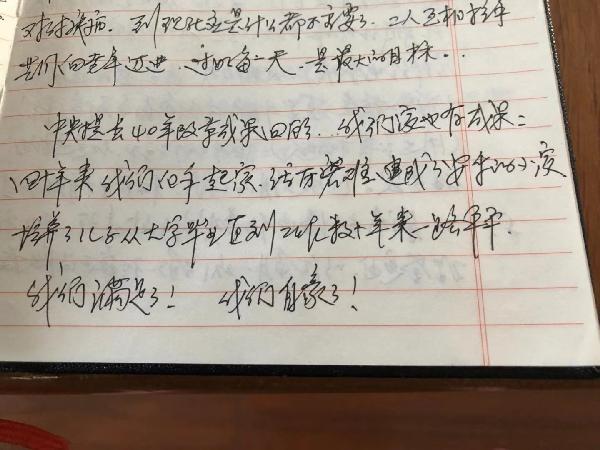 对待疾病。到现在是什么都不重要了。二人互相搀手
共同向老年迈进,过好每一天,是最大的目标。.
中央提出40年改革成果回顾。我们家也有成果:
四十年来我们白手起家,结百苦难建成了安乐的小家
培养了儿子从大学毕业直到工作数十年来一路平平.
我们满足了! 我们自豪了!